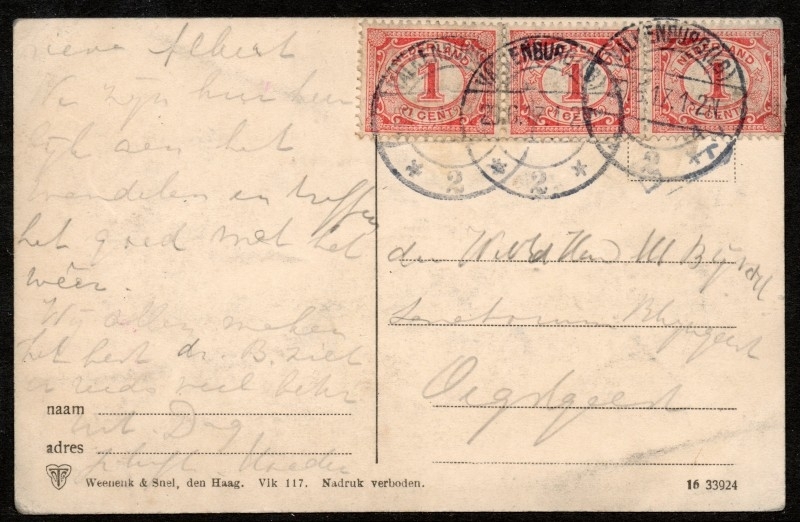 Lieve Albert
We zijn hier heer
lijk aan het
wandelen en treffen
het goed met het
wéér.
Wij allen maken
het best dr. B. ziet
er reeds veel beter
uit. Dag
Moeder
naam
adres
NEDERLAND 1 CENT
NEDERLAND 1 CENT
NEDERLAND 1 CENT
VALKENBURG
VALKENBURG
VALKENBURG
2
2
2
den Heer M Bijvoet
Sanatorium Rhijngeest
Oegstgeest
Weenenk & Snel, den Haag. Vlk 117. Nadruk verboden.
16 33924